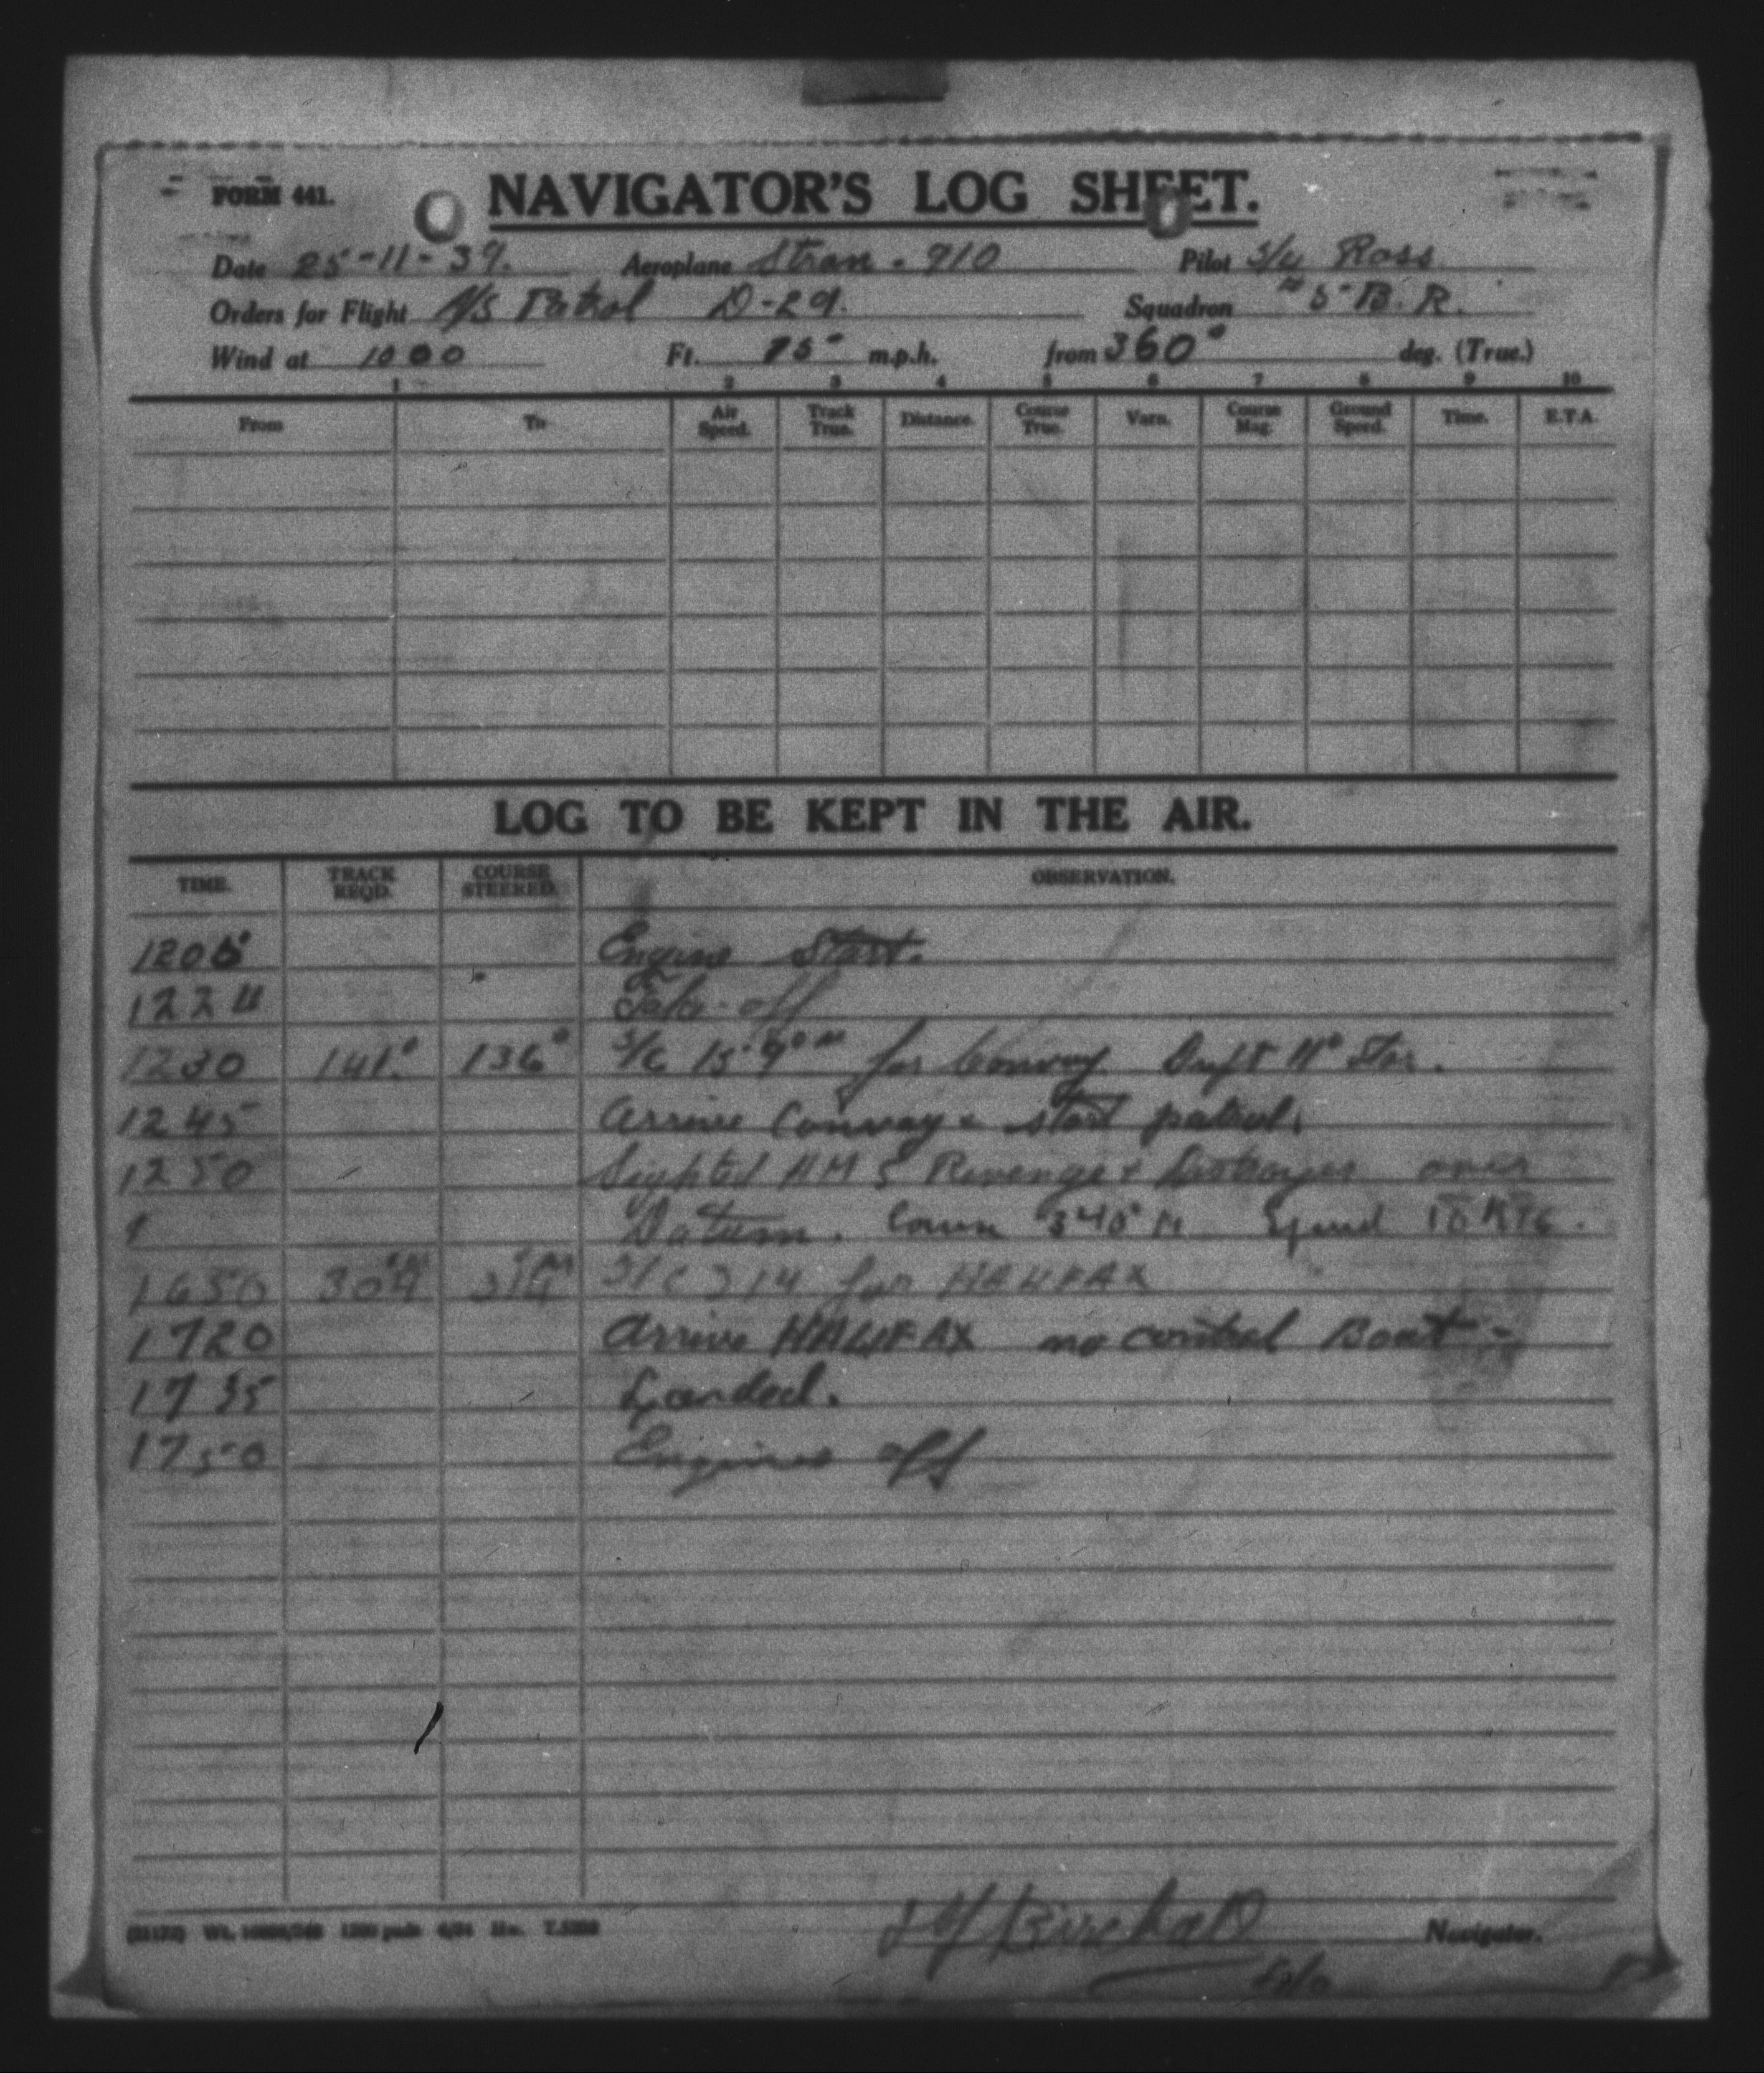 FORM 441. NAVIGATOR'S LOG SHEET.
Date 25-11-39. Aeroplane Stran. 910 Pilot S/L Ross
Orders for Flight A/S Patrol D-29. Squadron #5 B.R.
Wind at 1000 Ft. 25 m.p.h. from 360° deg. (True.)
1 2 3 4 5 6 7 8 9 10
From To Air Speed. Track True. Distance. Course True. Varn. Course Mag. Ground Speed. Time. E.T.A.
LOG TO BE KEPT IN THE AIR.
TIME. TRACK REQD. COURSE STEERED. OBSERVATION.
1205 Engine Start.
1224 Take-off
1230 141° 136° S/C for Convoy Drift 11° Star.
1245 Arrive Convoy & start patrol.
1250 Sighted HMS Revenge & Destroyer over
Datum. Course 340° M Speed 10 KTS.
1650 304°M 314°M S/C 314 for HALIFAX
1720 Arrive HALIFAX no control Boat -
1735 Landed.
1750 Engines off
Birchall Navigator.